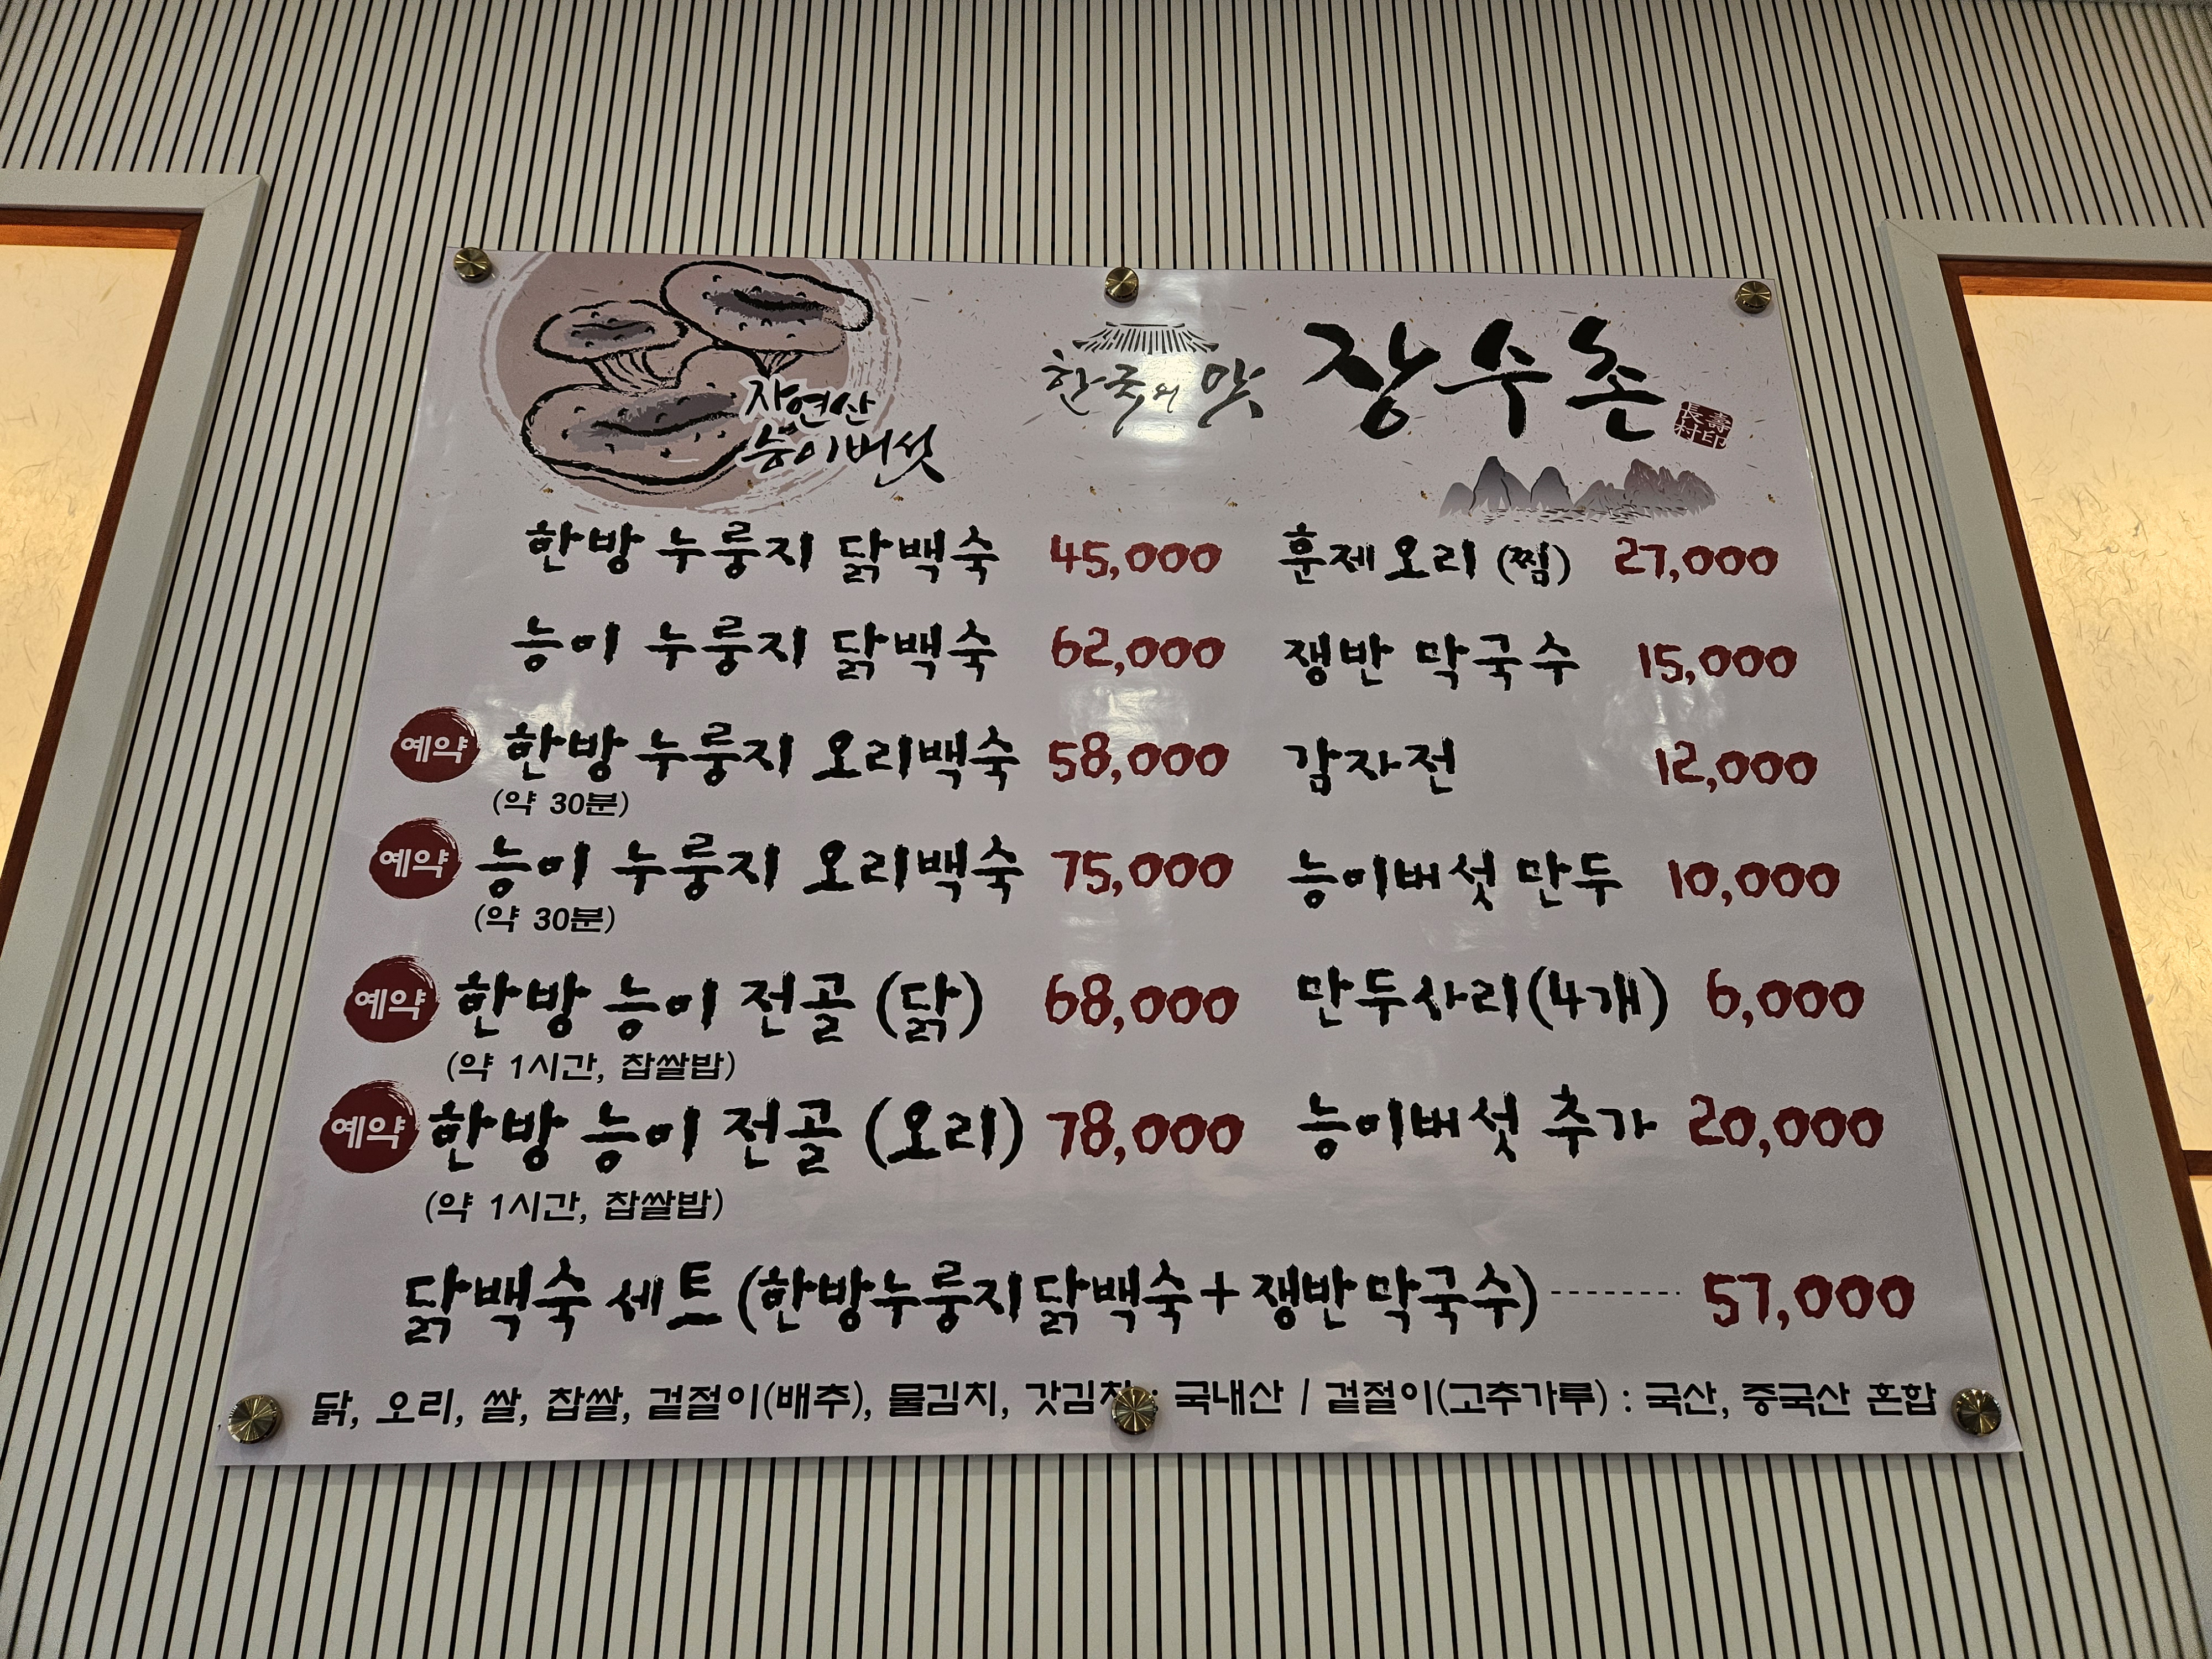 자연산
능이버섯
한국의 맛 장수촌
長壽
村印
한방 누룽지 닭백숙 45,000
능이 누룽지 닭백숙 62,000
예약 한방 누룽지 오리백숙 58,000
(약 30분)
예약 능이 누룽지 오리백숙 75,000
(약 30분)
예약 한방 능이 전골 (닭) 68,000
(약 1시간, 찹쌀밥)
예약 한방 능이 전골 (오리) 78,000
(약 1시간, 찹쌀밥)
훈제오리 (찜) 27,000
쟁반 막국수 15,000
감자전 12,000
능이버섯 만두 10,000
만두사리(4개) 6,000
능이버섯 추가 20,000
닭백숙 세트 (한방누룽지닭백숙+쟁반막국수) 57,000
닭, 오리, 쌀, 찹쌀, 겉절이(배추), 물김치, 갓김치 : 국내산 / 겉절이(고추가루) : 국산, 중국산 혼합